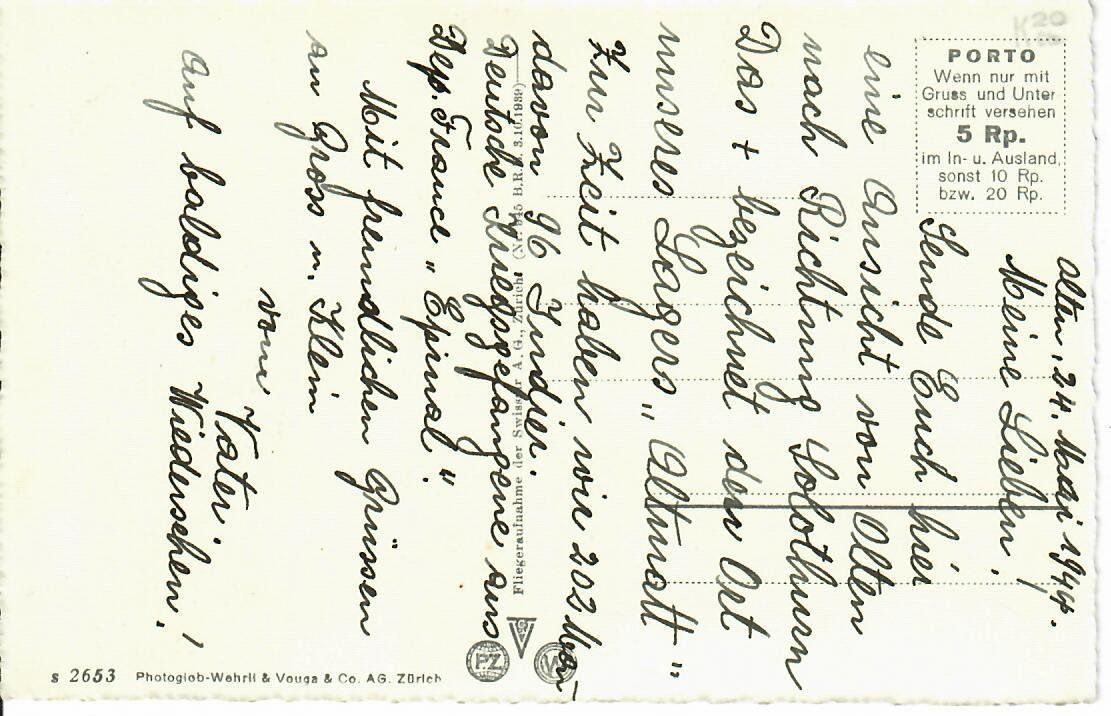 K 20
PORTO
Wenn nur mit
Gruss und Unter-
schrift versehen
5 Rp.
im In- u. Ausland,
sonst 10 Rp.
bzw. 20 Rp.
Olten, 24. Mai 1944.
Meine Lieben!
Sende Euch hier
eine Ansicht von Olten
nach Richtung Solothurn
Das + bezeichnet den Ort
unseres Lagers „Altmatt"
Zur Zeit haben wir 202 Man
davon 96 Indier.
Deutsche Kriegsgefangene aus
Dep. France „Epinal."
Mit freundlichen Grüssen
an Gross u. Klein
vom
Vater.
Auf baldiges Wiedersehen!
Fliegeraufnahme der Swissair A.G., Zürich. (Nr. B.R.B. 3.10.1939)
PZ
W
S 2653 Photoglob-Wehrli & Vouga & Co. AG. Zürich